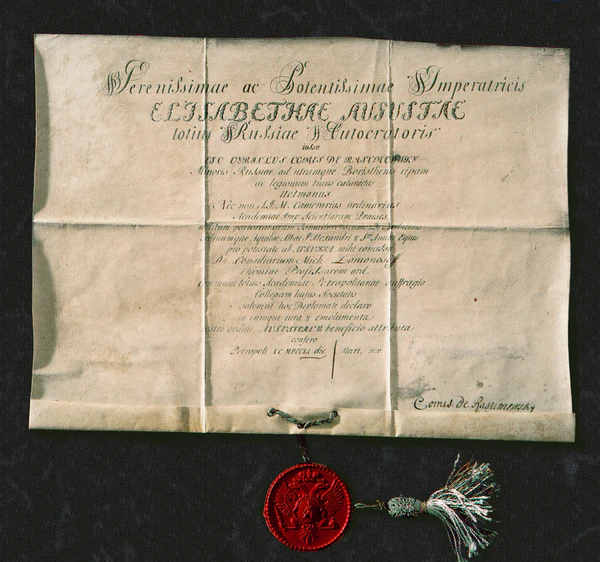 Serenissimae ac Potentissimae Imperatricis
ELISABETHAE AUGUSTAE
totius Russiae Autocratoris
iussu
EGO CYRILLUS COMES DE RASUMOWSKY
Minoris Russiae ad utramque Boristhenis ripam
ac legionum trans
Hetmanus
Nec non S.I.M. Camerarius ordinarius
Academiae Imp. Scientiarum Praeses
Eques
pro potestate ab AUGUSTA mihi concessa
Dn. Consiliarium Mich. Lomonosoff
Chimiae Professorem ord.
Communi totius Academiae Petropolitanae suffragio
Collegam huius Societatis
solemni hoc Diplomate declaro
iura & emolumenta
ordini AUGUSTAE beneficio attributa
confero
Petropoli MDCCLI die Mart.
Comes de Rasumowsky